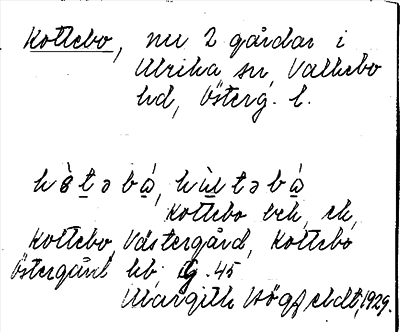 Kottebo, nu 2 gårdar i
Ulrika sn, Valkebo
hd, Österg. l.
Kottebo bek, ek,
Kottebo, Västergård, Kottebo
Östergård kb. 45
Margith Högfeldt, 1929.